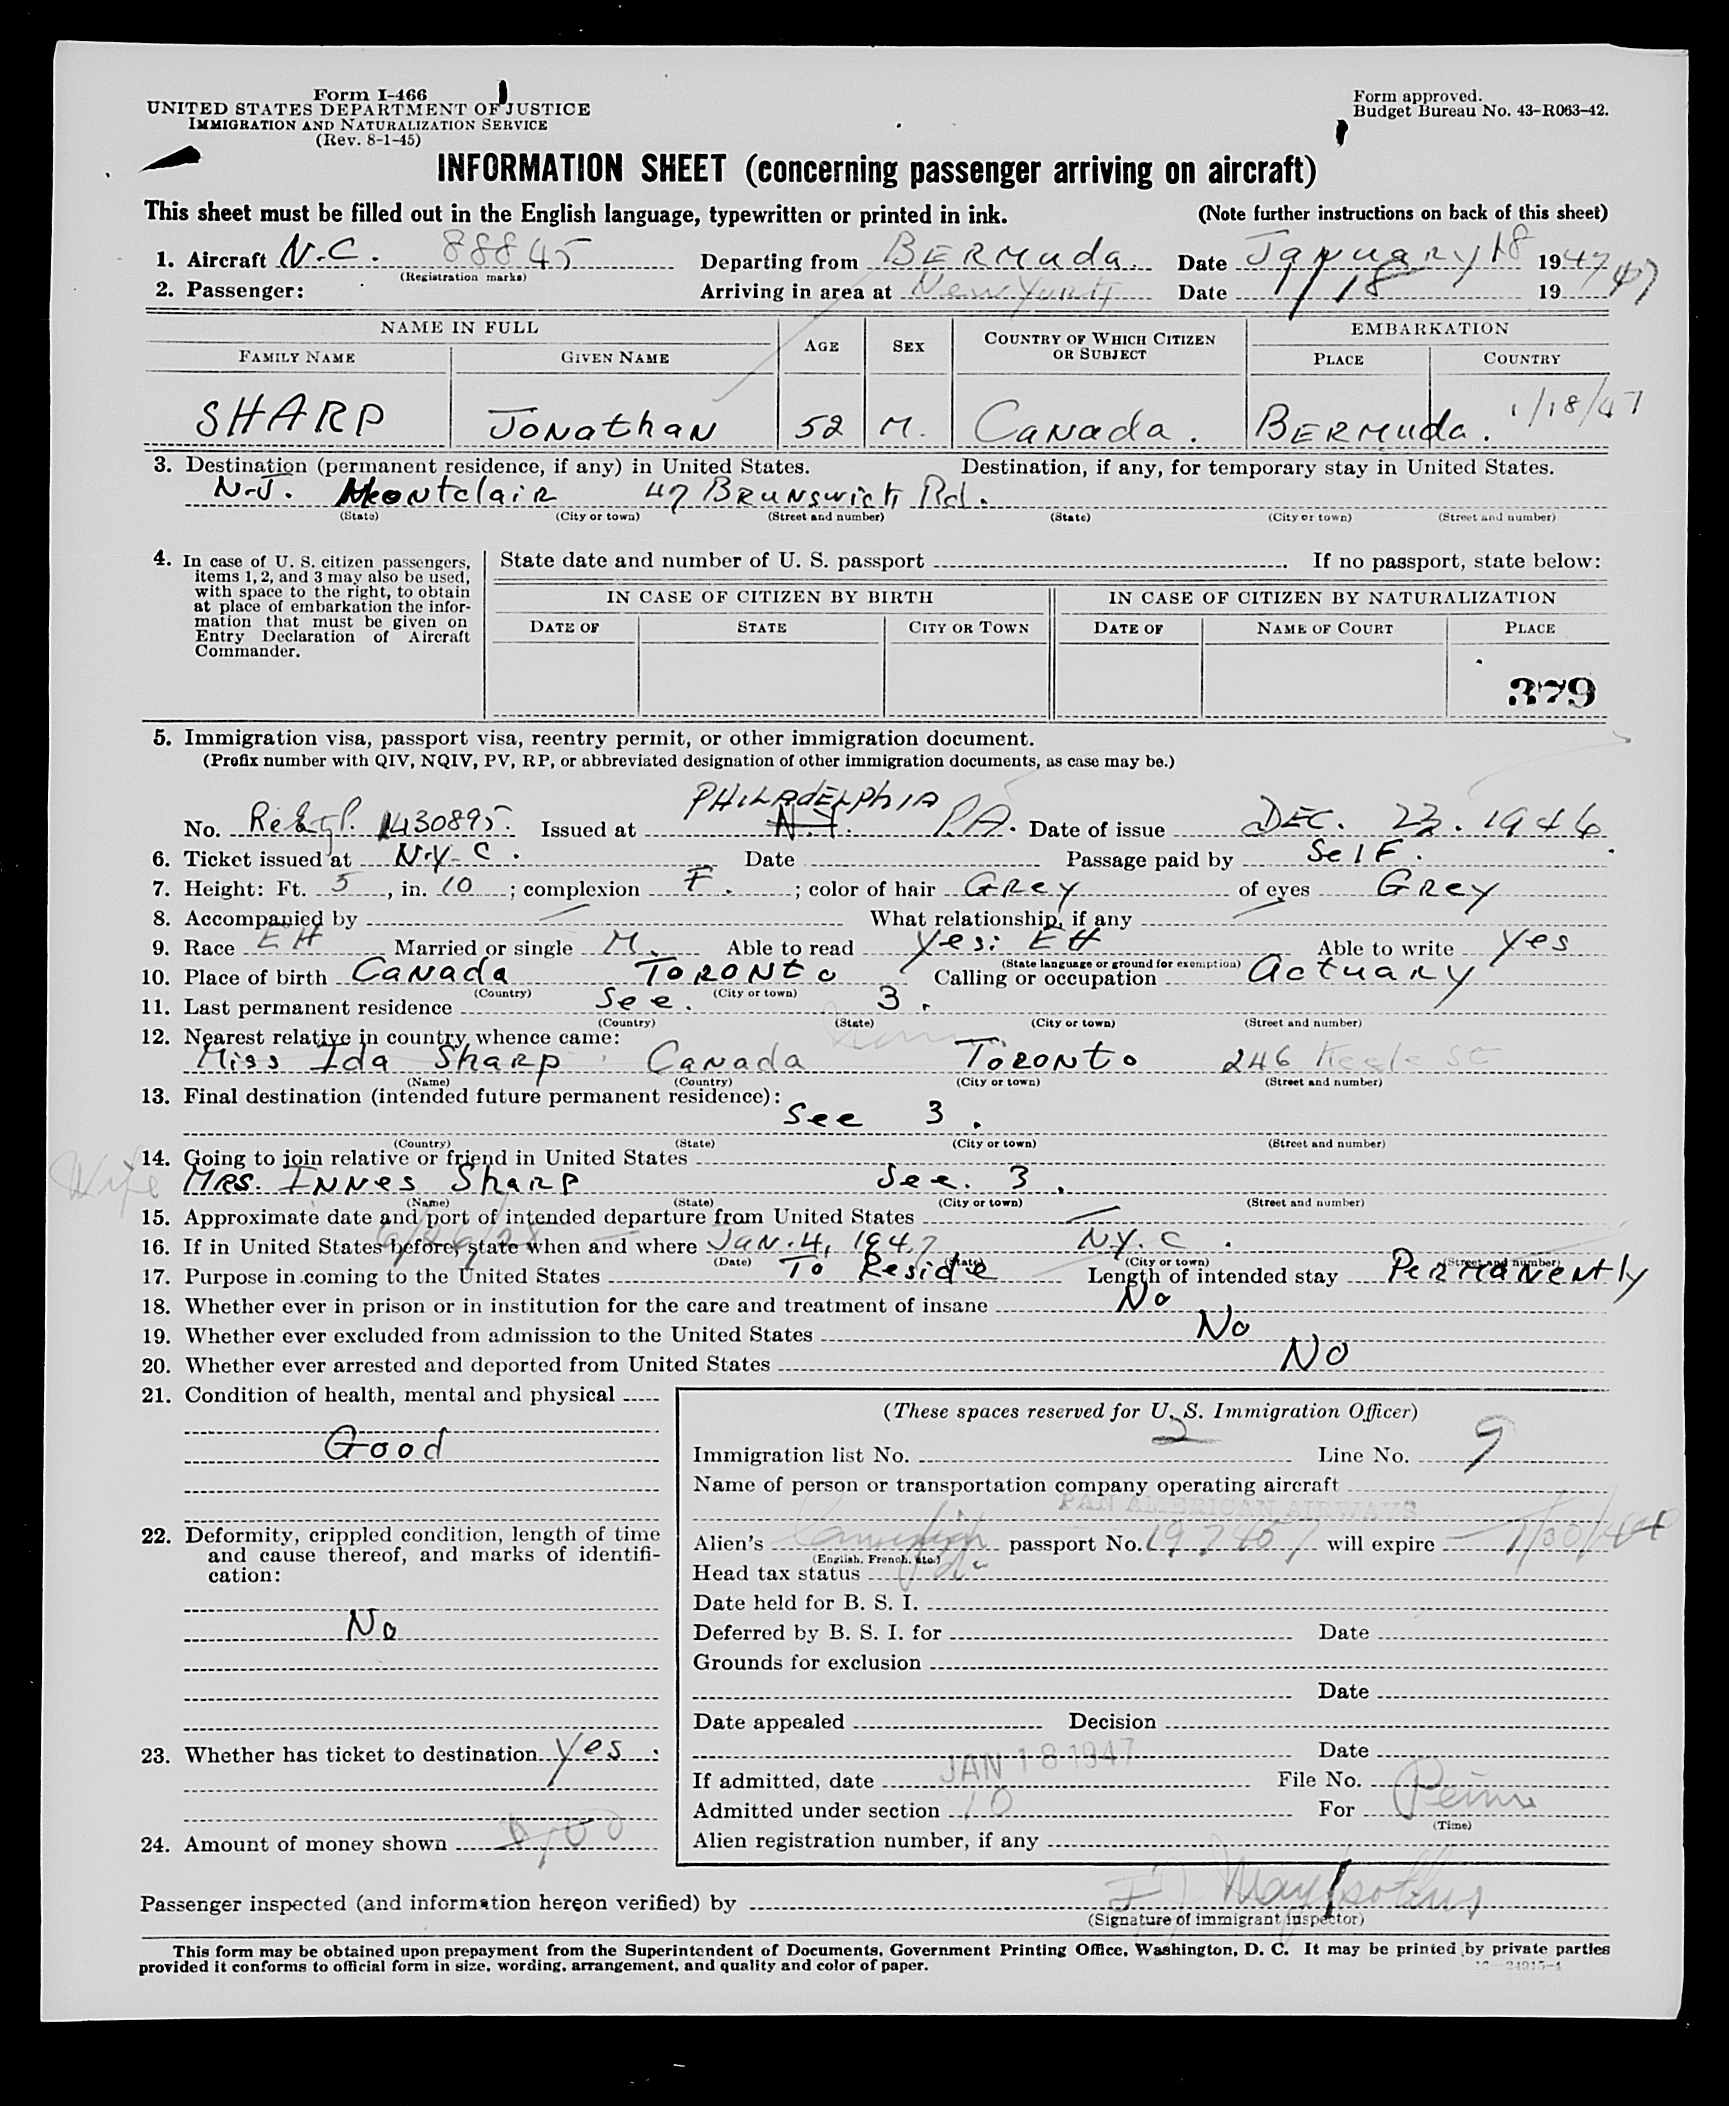 Form I-466
UNITED STATES DEPARTMENT OF JUSTICE
IMMIGRATION AND NATURALIZATION SERVICE
(Rev. 8-1-45)
Form approved.
Budget Bureau No. 43-R063-42.
INFORMATION SHEET (concerning passenger arriving on aircraft)
This sheet must be filled out in the English language, typewritten or printed in ink. (Note further instructions on back of this sheet)
1. Aircraft N.C. 88845 Departing from BERMuda. Date January 18 1947 47
(Registration marks)
2. Passenger: Arriving in area at New York Date 1/18 19
NAME IN FULL AGE SEX COUNTRY OF WHICH CITIZEN OR SUBJECT EMBARKATION
FAMILY NAME GIVEN NAME PLACE COUNTRY
SHARP JONathaN 52 M. CaNada. BERMuda. 1/18/47
3. Destination (permanent residence, if any) in United States. Destination, if any, for temporary stay in United States.
N.J. Montclair 47 BRUNswick Rd.
(State) (City or town) (Street and number) (State) (City or town) (Street and number)
4. In case of U. S. citizen passengers, items 1, 2, and 3 may also be used, with space to the right, to obtain at place of embarkation the information that must be given on Entry Declaration of Aircraft Commander.
State date and number of U. S. passport . If no passport, state below:
IN CASE OF CITIZEN BY BIRTH IN CASE OF CITIZEN BY NATURALIZATION
DATE OF STATE CITY OR TOWN DATE OF NAME OF COURT PLACE
379
5. Immigration visa, passport visa, reentry permit, or other immigration document.
(Prefix number with QIV, NQIV, PV, RP, or abbreviated designation of other immigration documents, as case may be.)
PHILAdELPhIA
No. 1430895. Issued at N.Y. PA. Date of issue DEC. 23. 1946
6. Ticket issued at N.Y.C. Date Passage paid by SelF.
7. Height: Ft. 5, in. 10; complexion F.; color of hair GRey of eyes GRey
8. Accompanied by — What relationship, if any —
9. Race EH Married or single M. Able to read Yes: EH Able to write Yes
(State language or ground for exemption)
10. Place of birth CaNada ToRoNto Calling or occupation Actuary
(Country) (City or town)
11. Last permanent residence See. 3.
(Country) (State) (City or town) (Street and number)
12. Nearest relative in country whence came:
Miss Ida ShaRp CaNada ToRoNto 246 Keele St
(Name) (Country) (City or town) (Street and number)
13. Final destination (intended future permanent residence):
See 3.
(Country) (State) (City or town) (Street and number)
14. Going to join relative or friend in United States
Wife MRS. INNes ShaRp See. 3.
(Name) (State) (City or town) (Street and number)
15. Approximate date and port of intended departure from United States —
16. If in United States before, state when and where JaN. 4, 1947 N.Y.C.
(Date) (State) (City or town) (Street and number)
17. Purpose in coming to the United States To Reside Length of intended stay PeRmaNently
18. Whether ever in prison or in institution for the care and treatment of insane No
19. Whether ever excluded from admission to the United States No
20. Whether ever arrested and deported from United States No
21. Condition of health, mental and physical
Good
22. Deformity, crippled condition, length of time and cause thereof, and marks of identification:
No
23. Whether has ticket to destination Yes.
24. Amount of money shown
(These spaces reserved for U. S. Immigration Officer)
Immigration list No. 2 Line No. 9
Name of person or transportation company operating aircraft
PAN AMERICAN AIRWAYS
Alien's Canadian passport No. will expire
(English, French, etc.)
Head tax status
Date held for B. S. I.
Deferred by B. S. I. for Date
Grounds for exclusion
Date
Date appealed Decision
Date
If admitted, date JAN 18 1947 File No.
Admitted under section 10 For
(Time)
Alien registration number, if any
Passenger inspected (and information hereon verified) by
(Signature of immigrant inspector)
This form may be obtained upon prepayment from the Superintendent of Documents, Government Printing Office, Washington, D. C. It may be printed by private parties
provided it conforms to official form in size, wording, arrangement, and quality and color of paper.